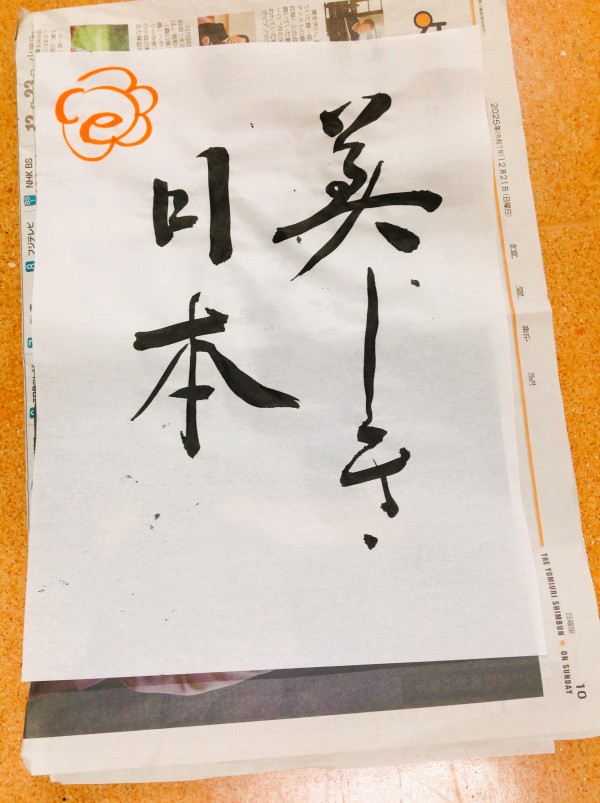 美しき
日本
e
2025年(令和7年)12月21日(日曜日)
讀賣新聞
日曜版
THE YOMIURI SHIMBUN ON SUNDAY
10
NHK BS
8 フジテレビ